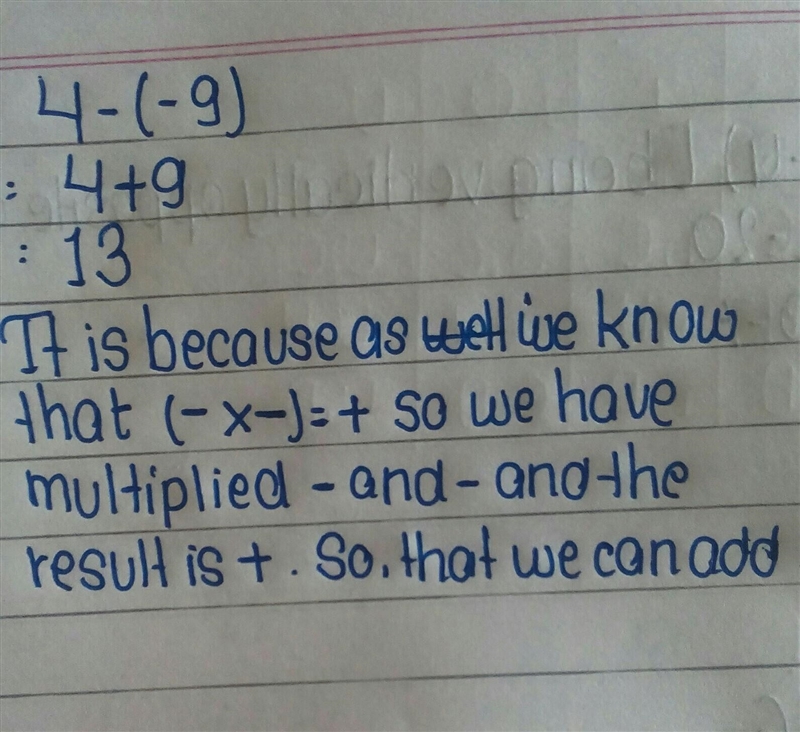 4-(-9)
: 4+9
: 13
It is because as well we know
that (-x-)=+ so we have
multiplied - and - and the
result is + . So, that we can add